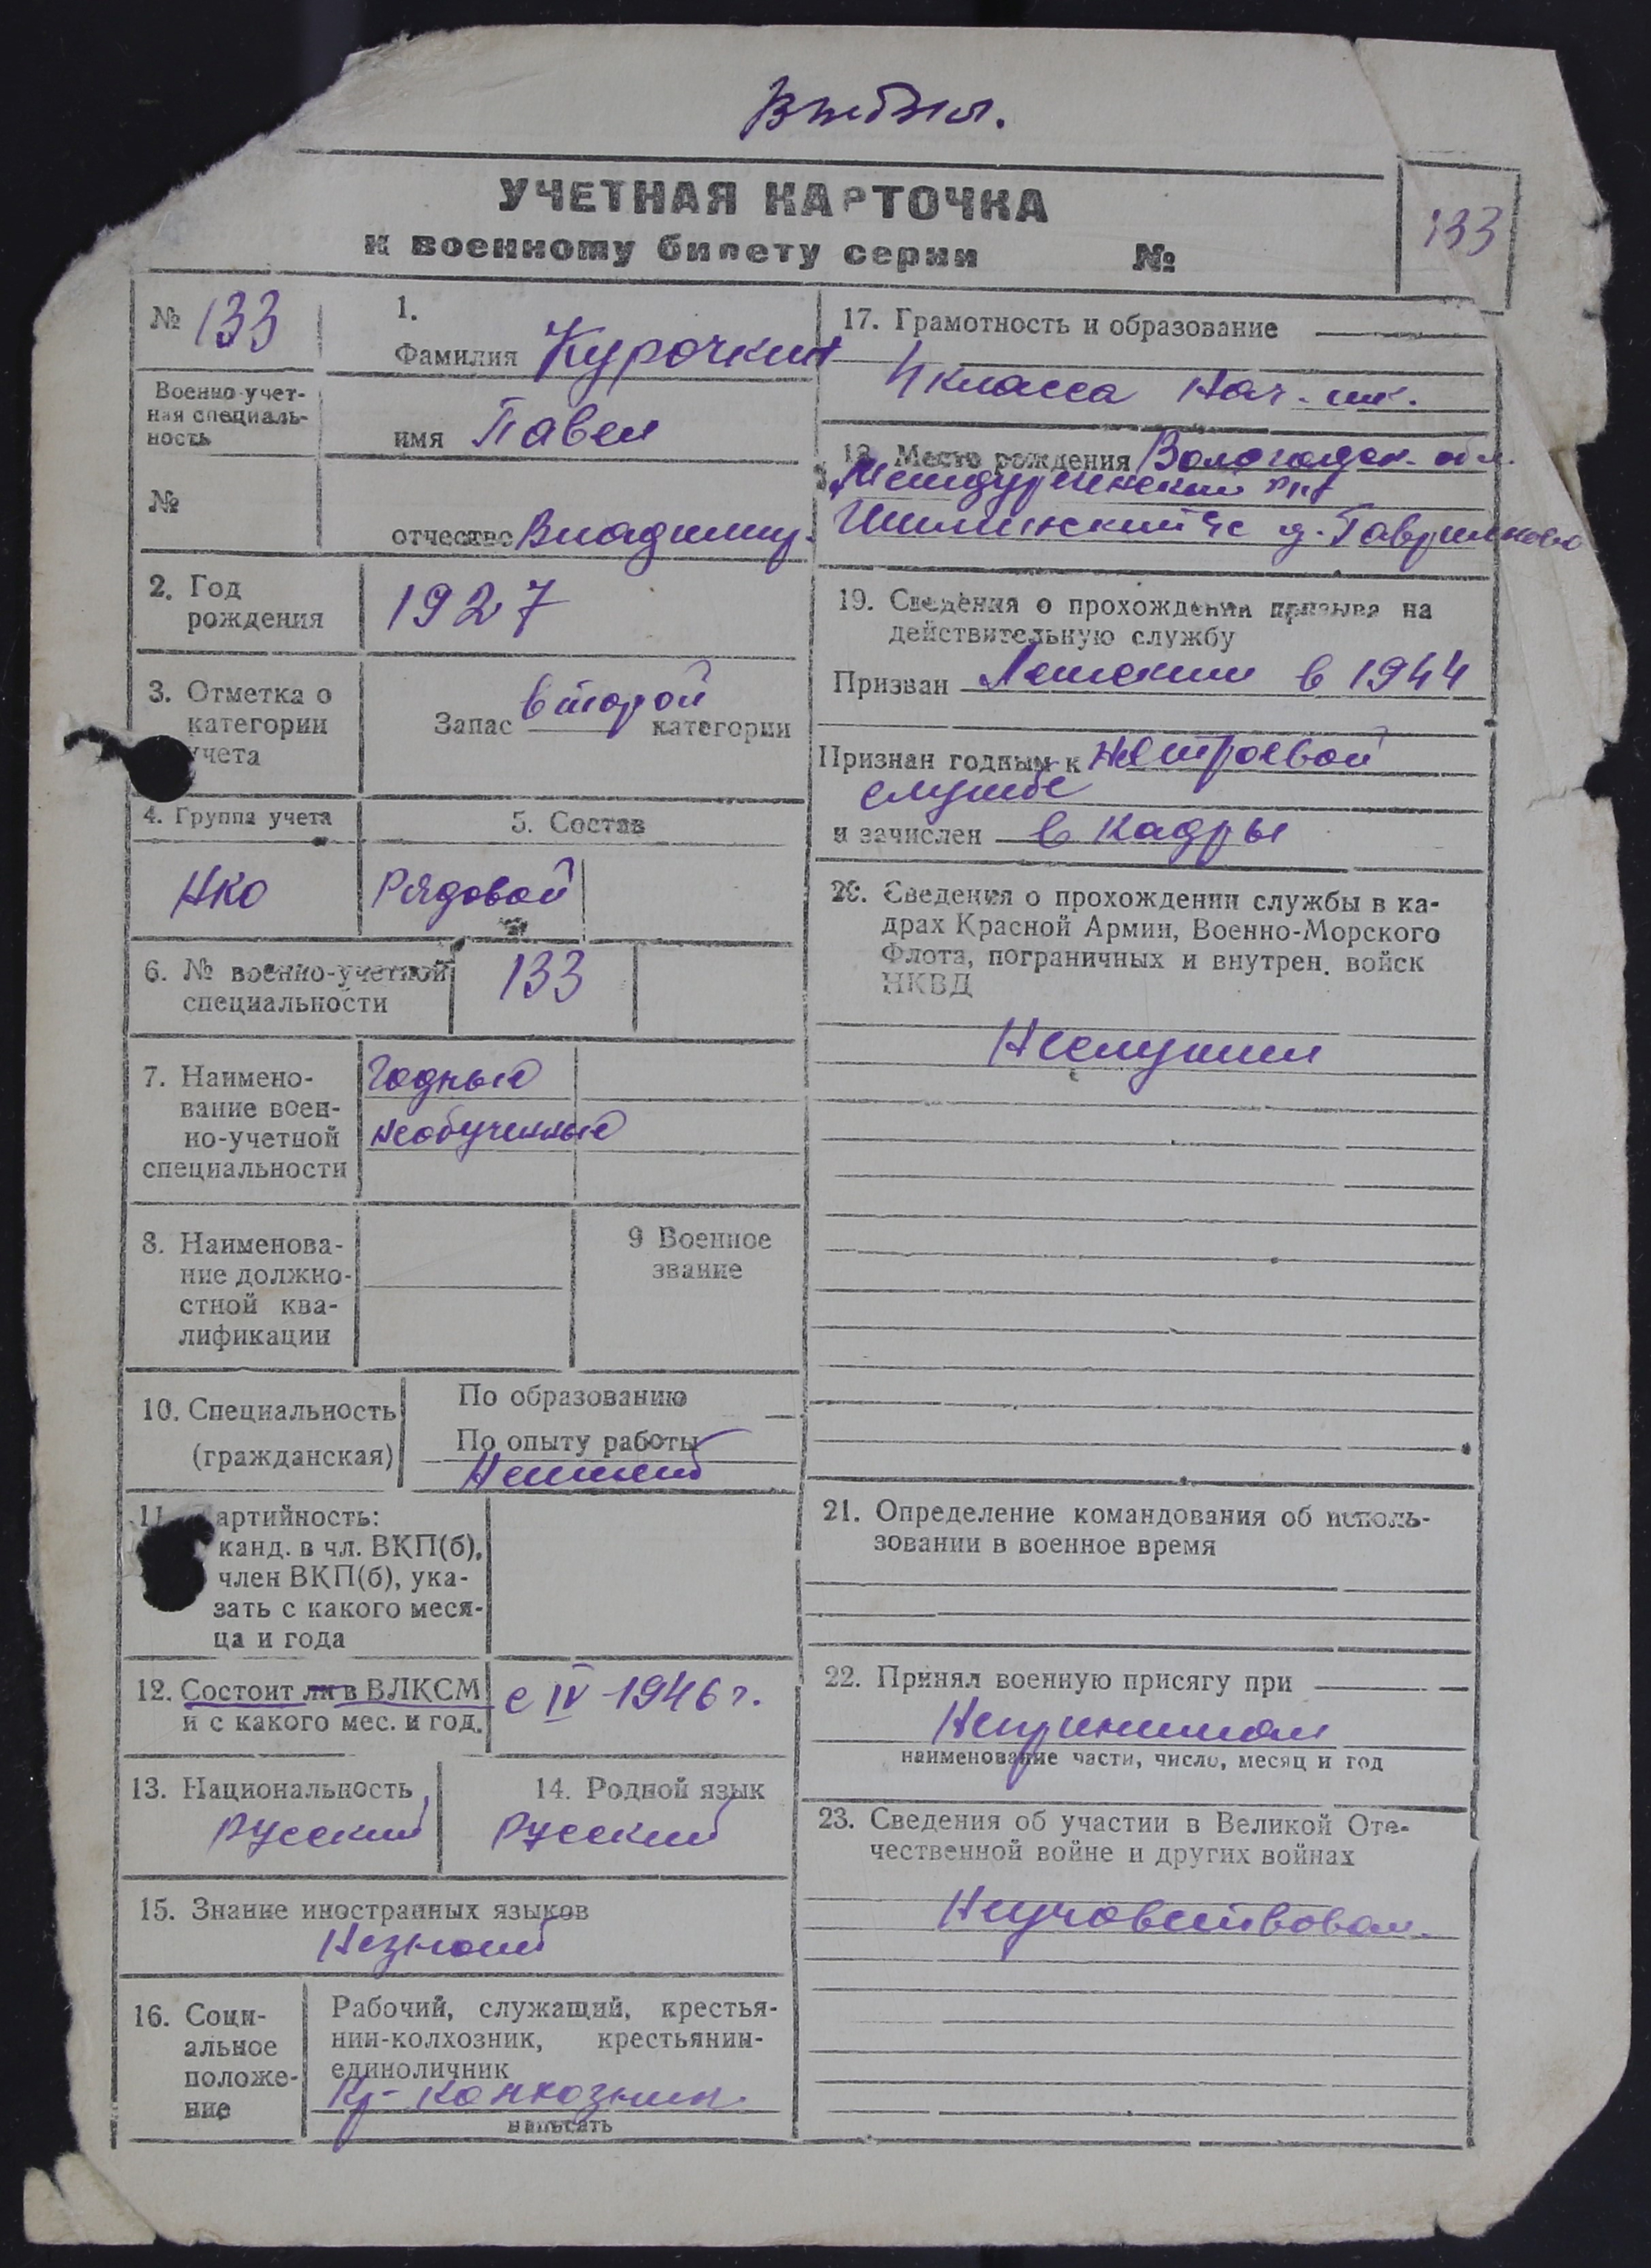 УЧЕТНАЯ КАРТОЧКА
к военному билету серии №
133
№ 133
Военно-учет-
ная специаль-
ность
№
1.
Фамилия Курочкин
имя Павел
отчество Владимир.
2. Год
рождения
1927
3. Отметка о
категории
учета
Запас второй категории
4. Группа учета
5. Состав
НКО
Рядовой
6. № военно-учетной
специальности
133
7. Наимено-
вание воен-
но-учетной
специальности
Годные
необученные
8. Наименова-
ние должно-
стной ква-
лификации
9 Военное
звание
10. Специальность
(гражданская)
По образованию
По опыту работы
Неимеет
11. Партийность:
канд. в чл. ВКП(б),
член ВКП(б), ука-
зать с какого меся-
ца и года
12. Состоит ли в ВЛКСМ
и с какого мес. и год.
с IV-1946 г.
13. Национальность
Русский
14. Родной язык
Русский
15. Знание иностранных языков
Незнает
16. Соци-
альное
положе-
ние
Рабочий, служащий, крестья-
нин-колхозник, крестьянин-
единоличник
Кр-колхозник
написать
17. Грамотность и образование
4 класса нач. шк.
18. Место рождения Вологодск. обл.
Междуреченский
с/с д. Гаврилково
19. Сведения о прохождении призыва на
действительную службу
Призван в 1944
Признан годным к нестроевой
службе
и зачислен в кадры
20. Сведения о прохождении службы в ка-
драх Красной Армии, Военно-Морского
Флота, пограничных и внутрен. войск
НКВД
Неслужил
21. Определение командования об исполь-
зовании в военное время
22. Принял военную присягу при
Непринимал
наименование части, число, месяц и год
23. Сведения об участии в Великой Оте-
чественной войне и других войнах
Неучаствовал.